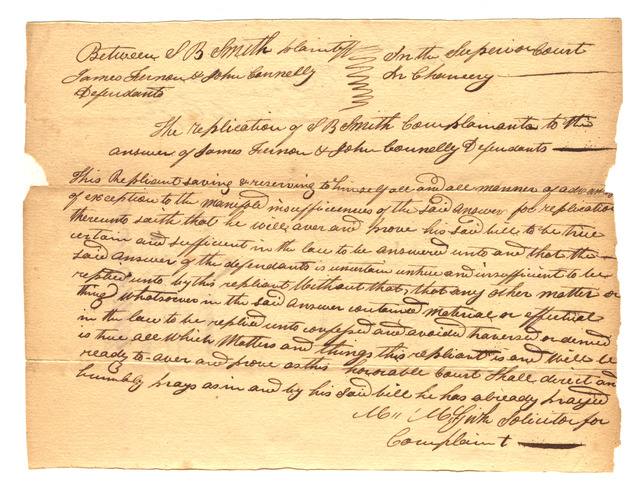 Between S B Smith plaintiff
James Fernon & John Connelly
Defendants
In the Superior Court
In Chancery
The replication of S B Smith Complainants to the
answer of James Fernon & John Connelly Defendants
This Repliant saving & reserving to himself all and all manner of advantage
of exception to the manifold insufficiencies of the said answer for replication
thereunto saith that he will aver and prove his said bill to be true
certain and sufficient in the law to be answered unto and that the
said answer of the defendants is uncertain untrue and insufficient to be
replied unto by this repliant Without that, that any other matter or
thing whatsoever in the said answer contained material or effectual
in the law to be replied unto confessed and avoided traversed or denied
is true all which Matters and things this repliant is and will be
ready to aver and prove as this honorable Court shall direct and
humbly prays as in and by his said bill he has already prayed
Solicitor for
Complain t